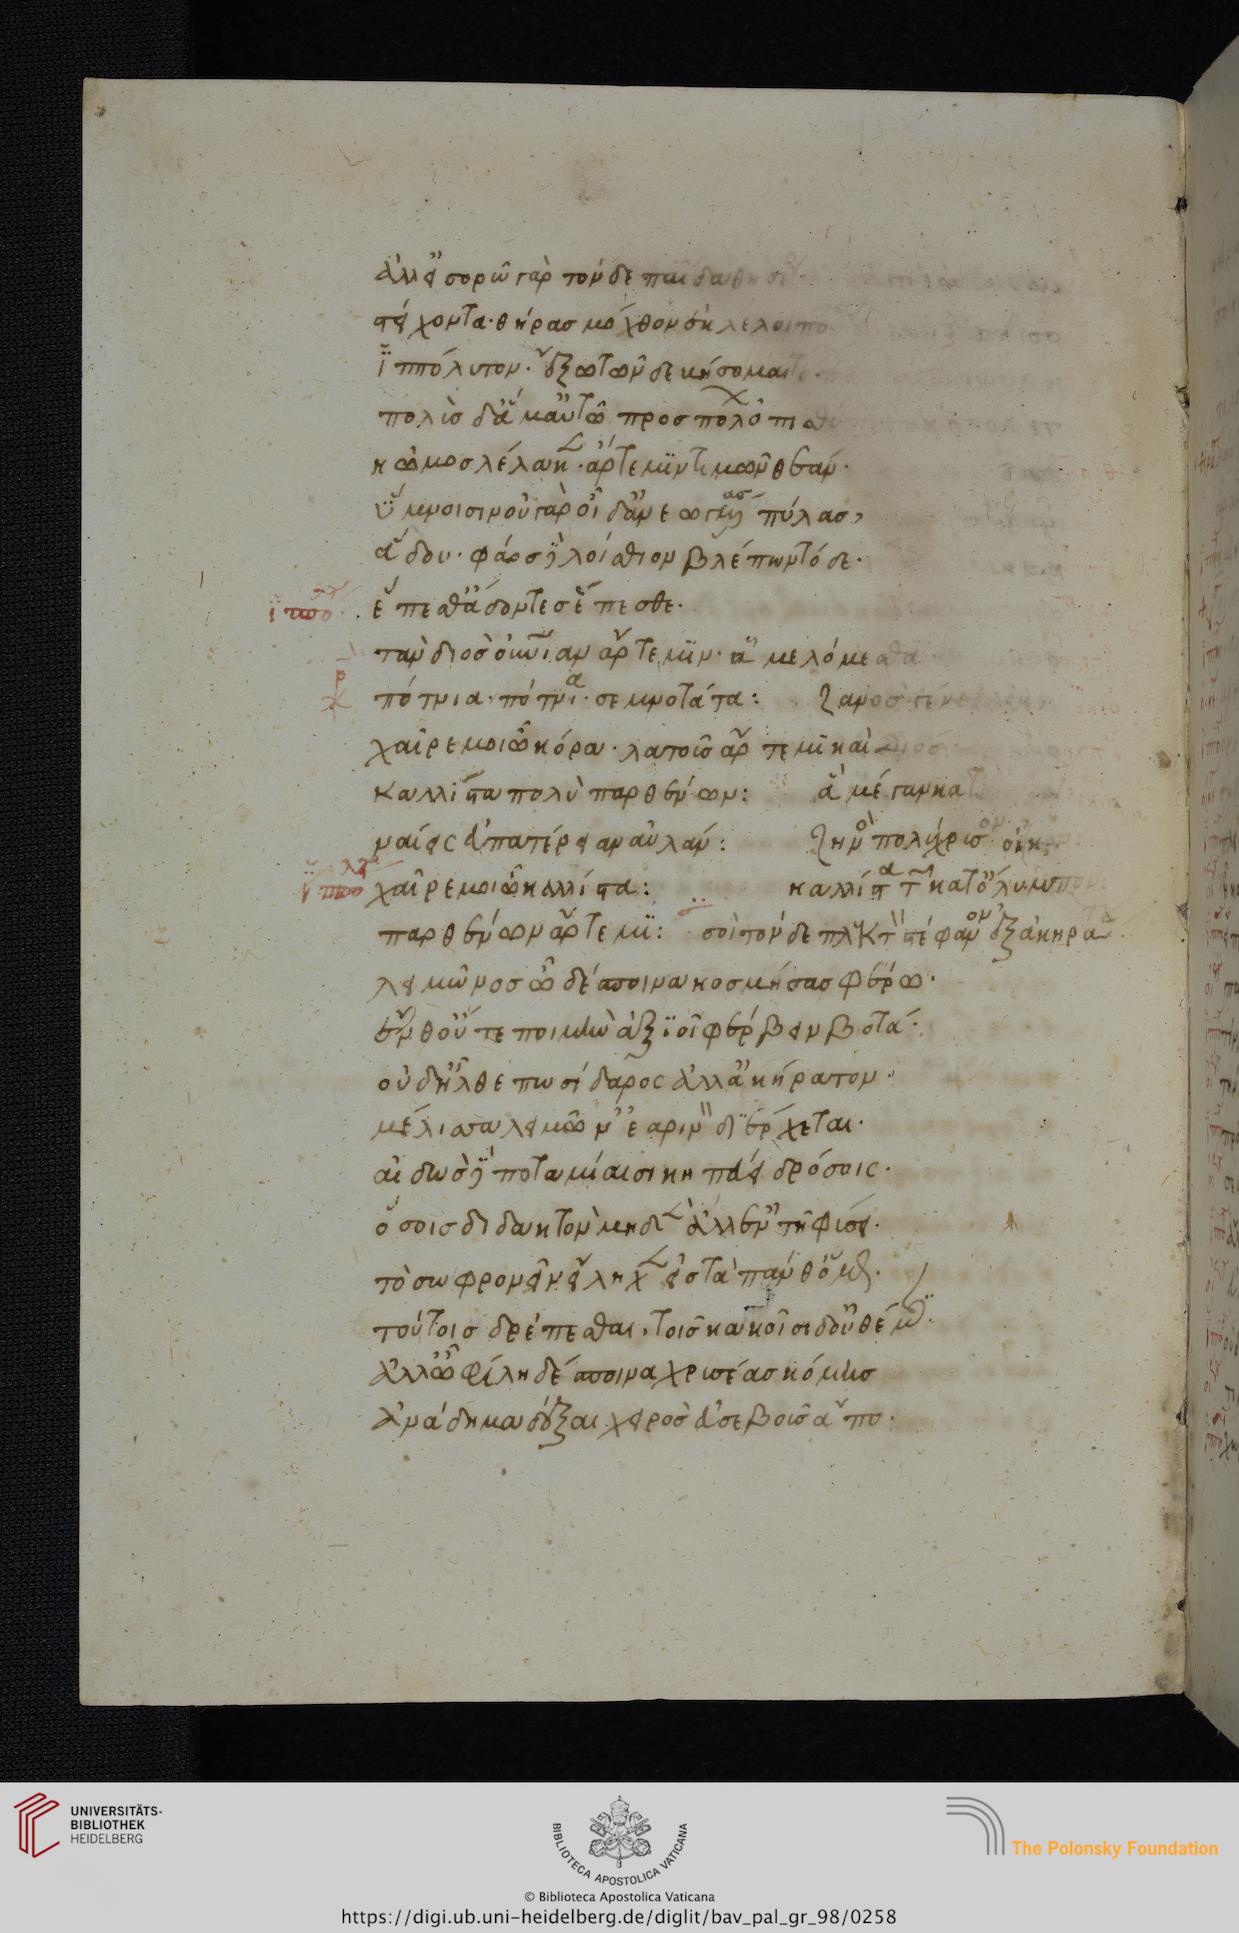 ἀλλ' εἰσορῶ γὰρ τόνδε παῖδα θησέ
στείχοντα· θήρας μόχθον ἐκλελοιπό
ἱππόλυτον· ἔξω τῶνδε βήσομαι
πολὺς δ' ἅμ' αὐτῶ προσπόλων
κῶμος λέλακεν· ἄρτεμιν τιμῶν θεὰν·
ὕμνοισιν οὐ γὰρ οἶδ' ἀνεωγμένας πύλας,
ἅδου· φάος δὲ λοίσθιον βλέπων τόδε·
ἱππό. ἕπεσθ' ἄδοντες ἕπεσθε·
τὰν διὸς οὐρανίαν ἄρτεμιν· ᾇ μελόμεσθα
χο πότνια· πότνια· σεμνοτάτα: ζανὸς γένεθλον
χαῖρέ μοι ὦ κόρα· λατοῦς ἄρτεμι καὶ διός
καλλίστα πολὺ παρθένων: ἃ μέγαν κατ
ναίεις εὐπατέρειαν αὐλάν: ζηνὸς πολύχρυσον οἶκ
ἱππό χαῖρέ μοι ὦ καλλίστα: καλλίστα τῶν κατ' ὄλυμπον:
παρθένων ἄρτεμι: σοὶ τόνδε πλεκτὸν στέφανον ἐξ ἀκηράτου
λειμῶνος ὦ δέσποινα κοσμήσας φέρω·
ἔνθ' οὔτε ποιμὴν ἀξιοῖ φέρβειν βοτά·
οὐδ' ἦλθέ πω σίδαρος ἀλλ' ἀκήρατον·
μέλισσα λειμῶν' ἐαρινὸν διέρχεται·
αἰδὼς δὲ ποταμίαισι κηπεύει δρόσοις·
ὅσοις διδακτὸν μηδὲν ἀλλ' ἐν τῆ φύσει·
τὸ σωφρονεῖν εἴληχεν εἰς τὰ πάνθ' ὁμῶς·
τούτοις δρέπεσθαι, τοῖς κακοῖσι δ' οὐ θέμις·
ἀλλ' ὦ φίλη δέσποινα χρυσέας κόμης
ἀνάδημα δέξαι χειρὸς εὐσεβοῦς ἄπο·
UNIVERSITÄTS-
BIBLIOTHEK
HEIDELBERG
BIBLIOTECA APOSTOLICA VATICANA
The Polonsky Foundation
© Biblioteca Apostolica Vaticana
https://digi.ub.uni-heidelberg.de/diglit/bav_pal_gr_98/0258